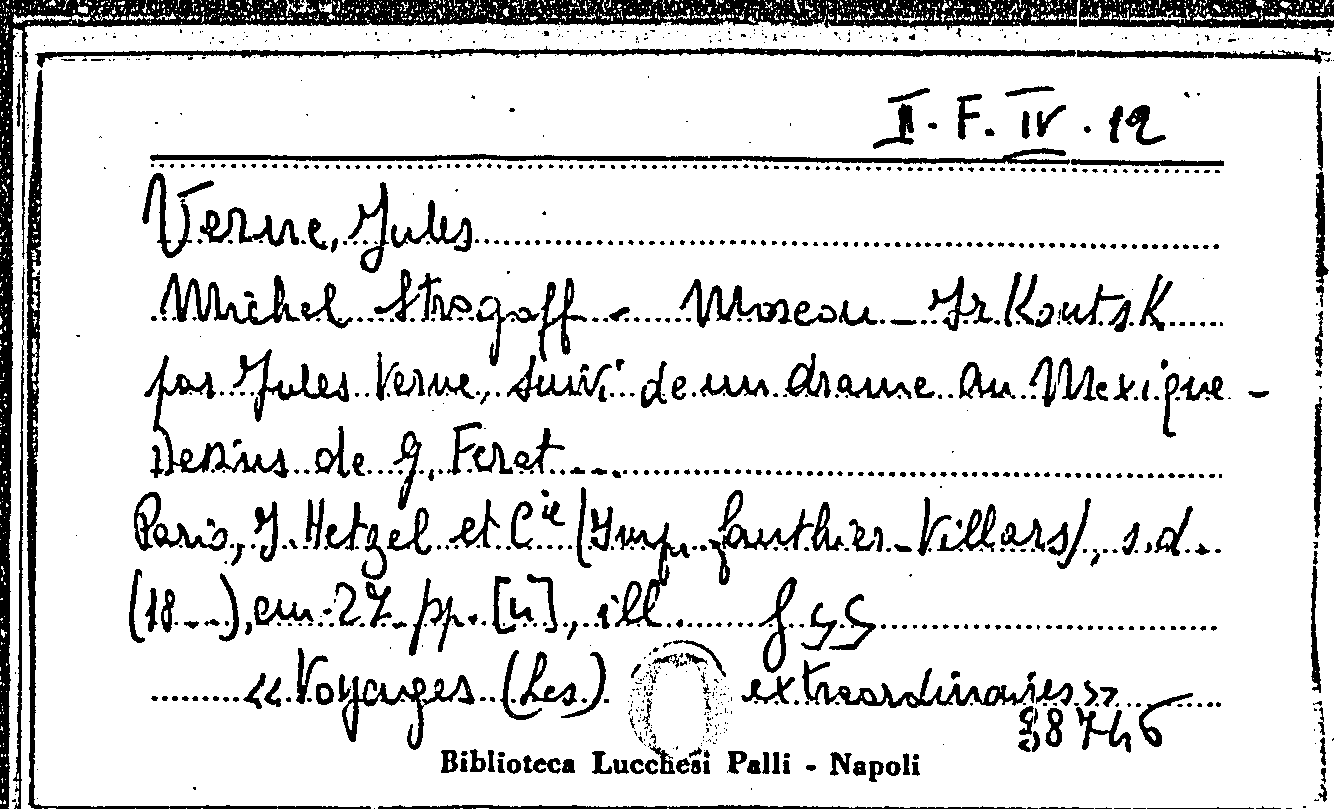 II. F. IV. 12
Verne, Jules
Michel Strogoff - Moscou - Irkoutsk
par Jules Verne, suivi de un drame au Mexique -
Dessins de G. Ferat
Paris, J. Hetzel et Cie (Imp. Gauthier-Villars), s.d.
(18...), cm. 27. pp. [n], ill.
« Voyages (Les) extraordinaires »
38746
Biblioteca Lucchesi Palli - Napoli